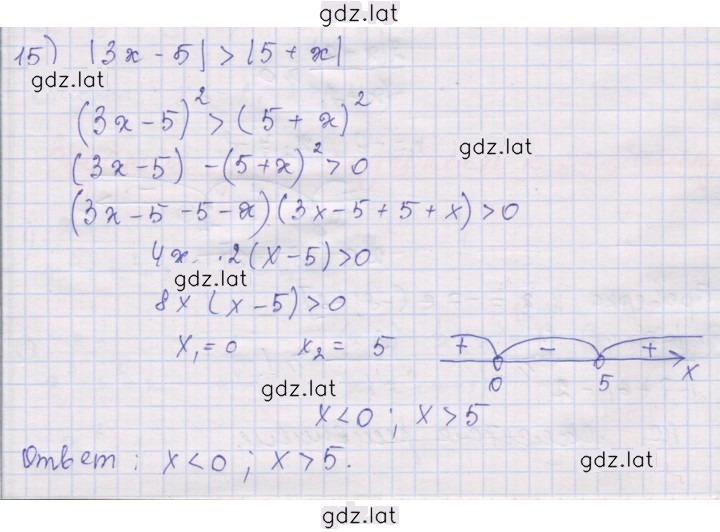 gdz.lat
15) |3x - 5| > |5 + x|
gdz.lat
(3x - 5)² > (5 + x)²
gdz.lat
(3x - 5) - (5 + x)² > 0
(3x - 5 - 5 - x)(3x - 5 + 5 + x) > 0
4x · 2(x - 5) > 0
gdz.lat
8x (x - 5) > 0
x₁ = 0 x₂ = 5 + - + 0 5 x
gdz.lat
x < 0 ; x > 5
Ответ : x < 0 ; x > 5.
gdz.lat
gdz.lat